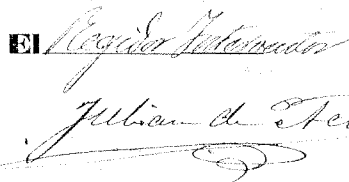 El Regidor Interventor
Julian de